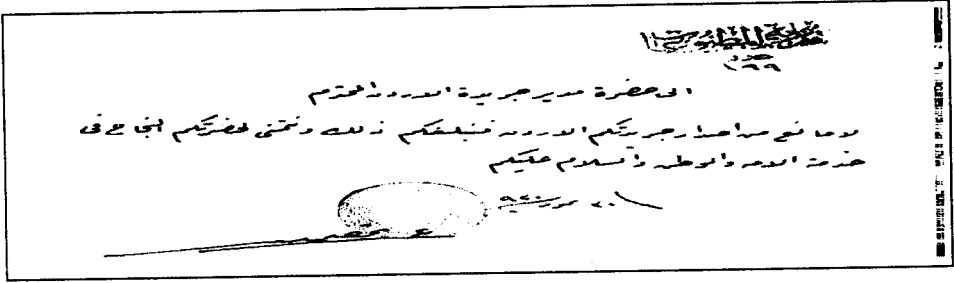 عدد
١٩٩
الى حضرة مدير جريدة الاردن المحترم
لا مانع من اصدار جريدتكم الاردن فنبلغكم ذلك ونتمنى لحضرتكم النجاح في
خدمة الامه والوطن والسلام عليكم